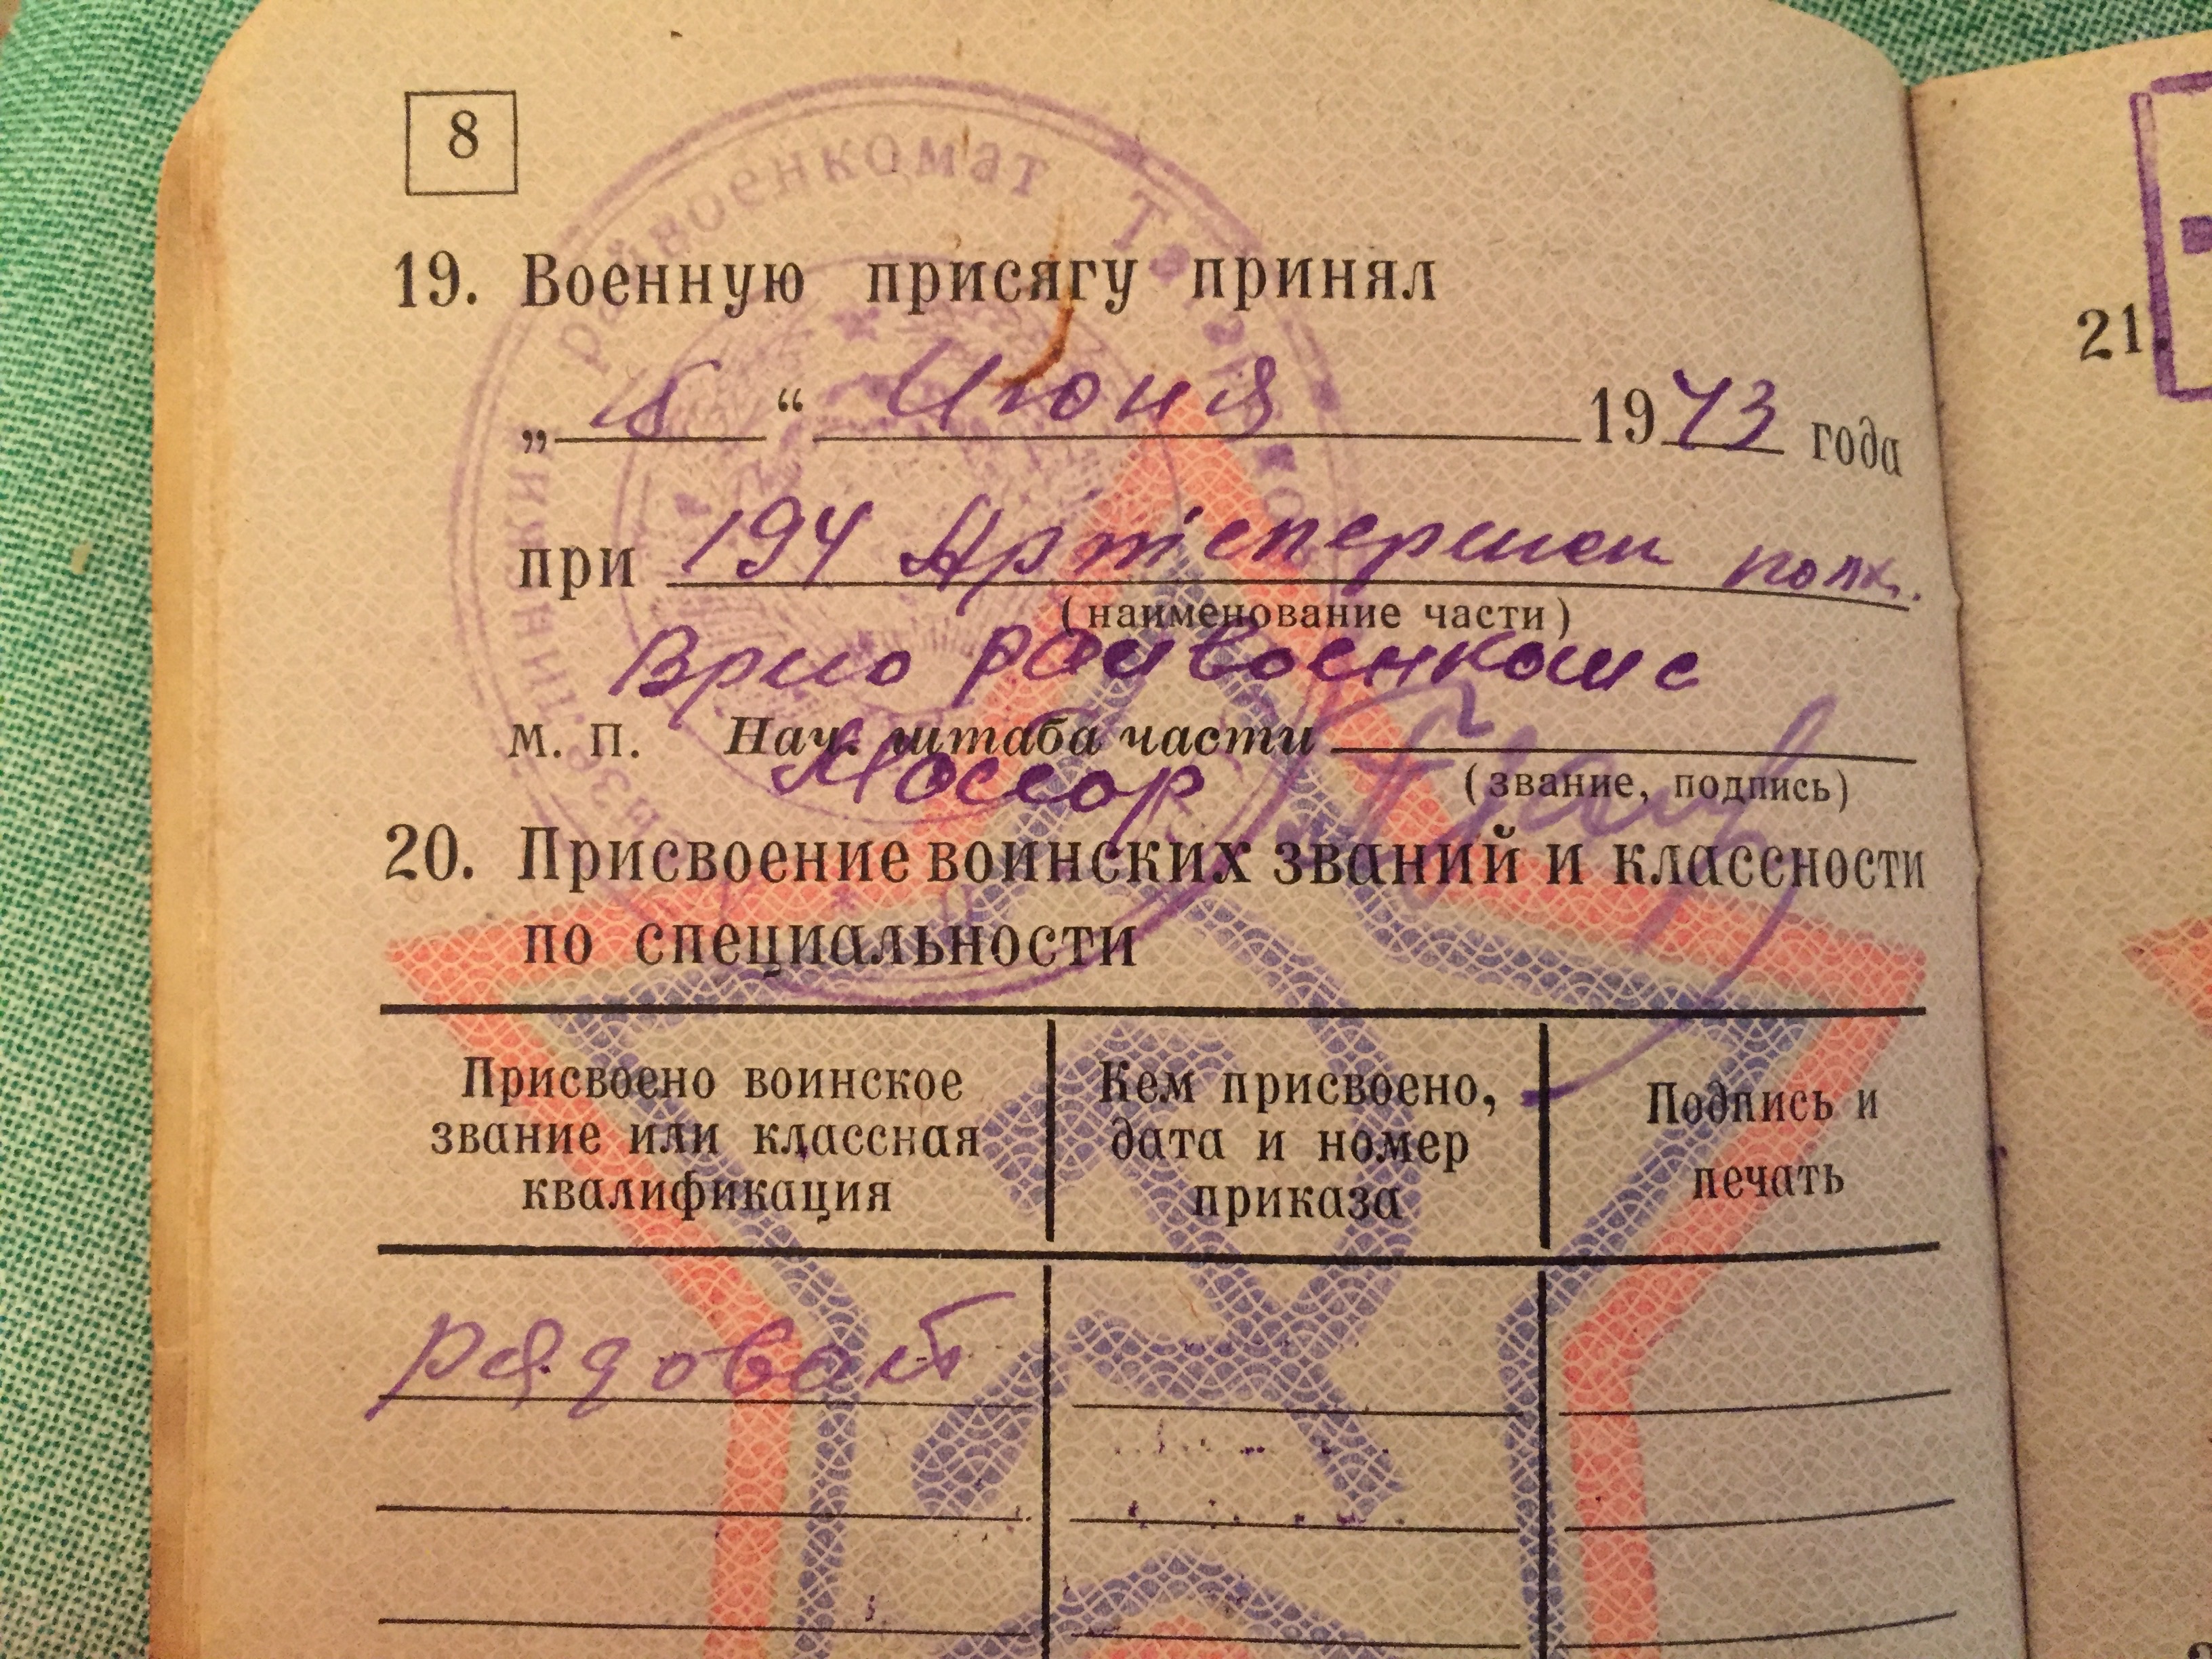 8
райвоенкомат
19. Военную присягу принял
„ “ Июня 1973 года
при 194 полк.
(наименование части)
Врио райвоенкома
м. п. Нач. штаба части
(звание, подпись)
20. Присвоение воинских званий и классности
по специальности
Присвоено воинское
звание или классная
квалификация
Кем присвоено,
дата и номер
приказа
Подпись и
печать
рядовой
21.